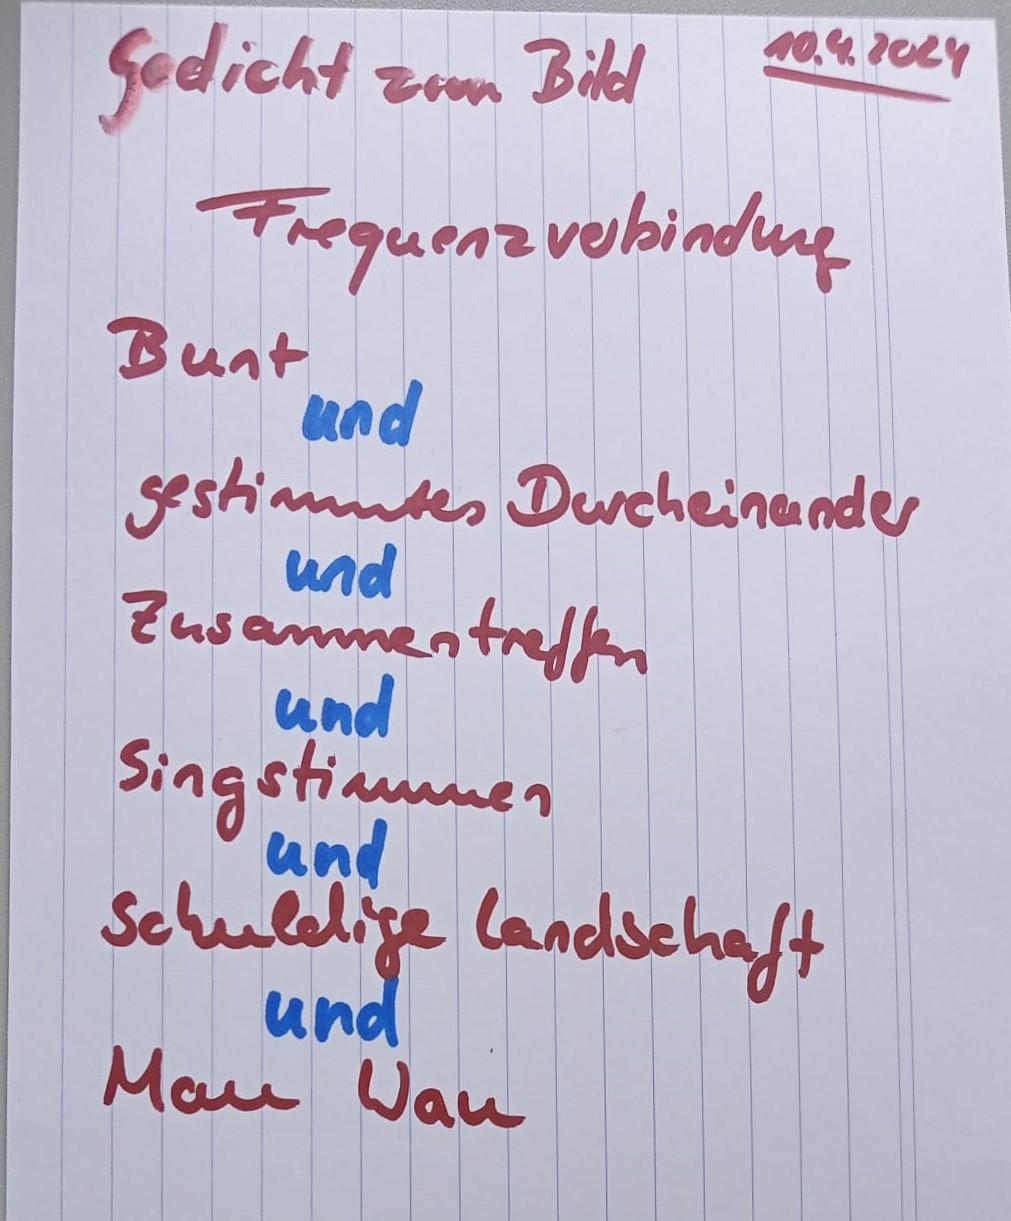 Gedicht zum Bild 10.4.2024
Frequenzverbindung
Bunt
und
gestimmtes Durcheinander
und
Zusammentreffen
und
Singstimmen
und
Schuldige Landschaft
und
Mau Wau